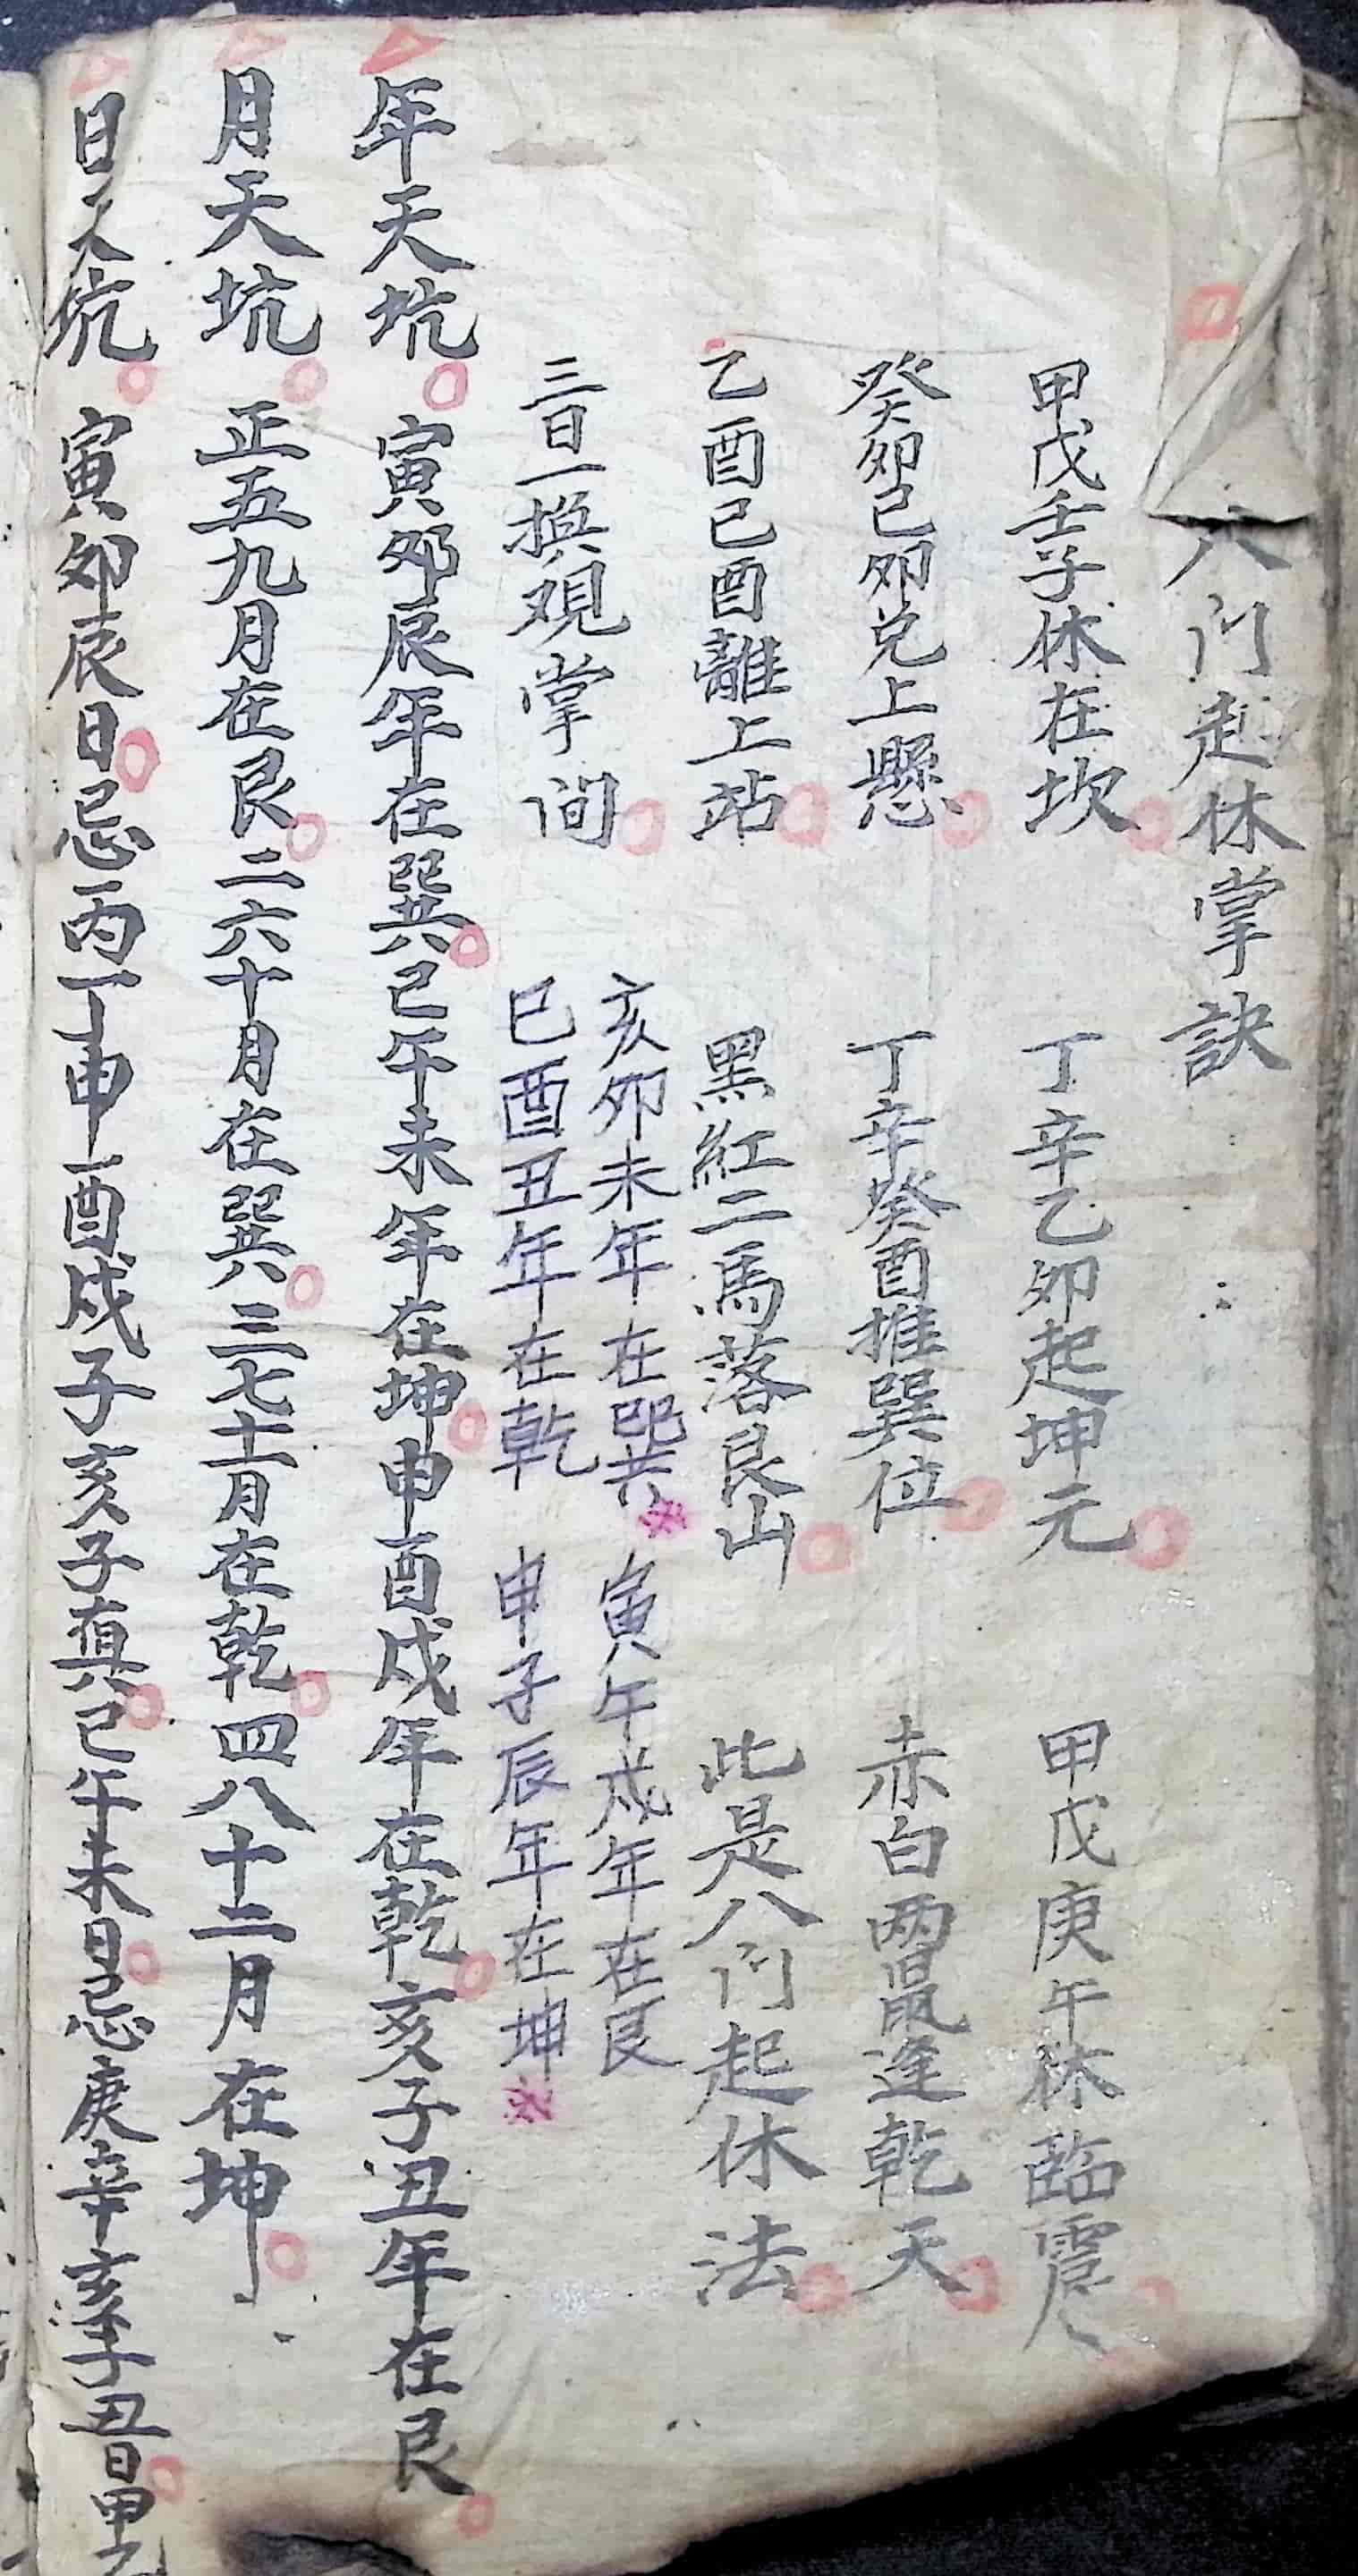 八门起休掌訣
甲戊壬子休在坎 丁辛乙卯起坤元 甲戊庚午休臨震
癸卯己卯兑上懸 丁辛癸酉推巽位 赤白两鼠逢乾天
乙酉己酉離上站 黑紅二馬落艮山 此是八门起休法
三日一换观掌间
亥卯未年在巽 寅午戌年在艮
巳酉丑年在乾 申子辰年在坤
年天坑 寅卯辰年在巽 巳午未年在坤 申酉戌年在乾 亥子丑年在艮
月天坑 正五九月在艮 二六十月在巽 三七十一月在乾 四八十二月在坤
日天坑 寅卯辰日忌丙丁申酉戌子亥子真巳午未日忌庚辛亥子丑日甲乙